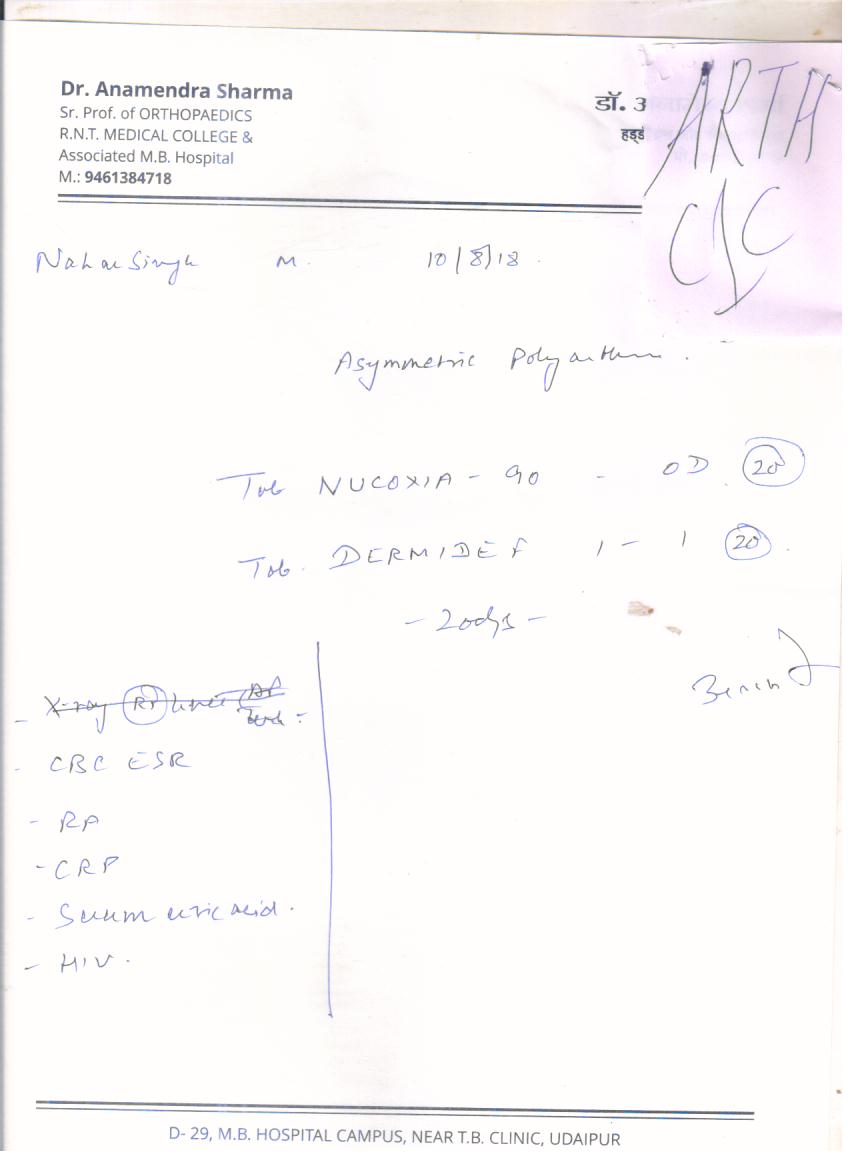 Dr. Anamendra Sharma
Sr. Prof. of ORTHOPAEDICS
R.N.T. MEDICAL COLLEGE &
Associated M.B. Hospital
M.: 9461384718
डॉ. अ
हड्ड
ARTH
CIC
Nahar Singh M. 10/8/18.
Asymmetric
Tab NUCOXIA - 90 - OD 20
Tab. DERMIDEF 1 - 1 20
- 20 dys -
- X-ray Rt knee AP
- CBC ESR
- RA
- CRP
- Serum uric acid.
- HIV.
D- 29, M.B. HOSPITAL CAMPUS, NEAR T.B. CLINIC, UDAIPUR